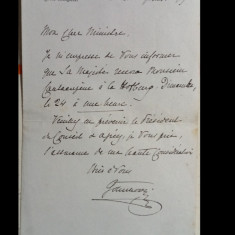 Mon cher Ministre,
Je m'empresse de Vous informer
que Sa Majesté recevra Monsieur
à la Hofburg Dimanche
le 24 à une heure.
Veuillez en prévenir le Président
du Conseil & agréez, je Vous prie,
l'assurance de ma haute Considération